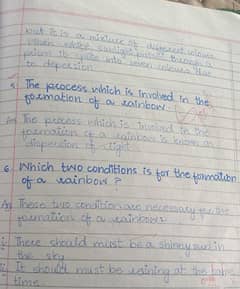 but it is a mixture of different colours
when white sunlight passes through a
prism it splits into seven colours due
to dispersion
5 The process which is involved in the
formation of a rainbow.
Ans The process which is involved in the
formation of a rainbow is known as
"dispersion of light
6 Which two conditions is for the formation
of a rainbow?
Ans These two condition are necessary for the
formation of a rainbow:
i. There should must be a shinny sun in
the sky
ii. It should must be raining at the same
time